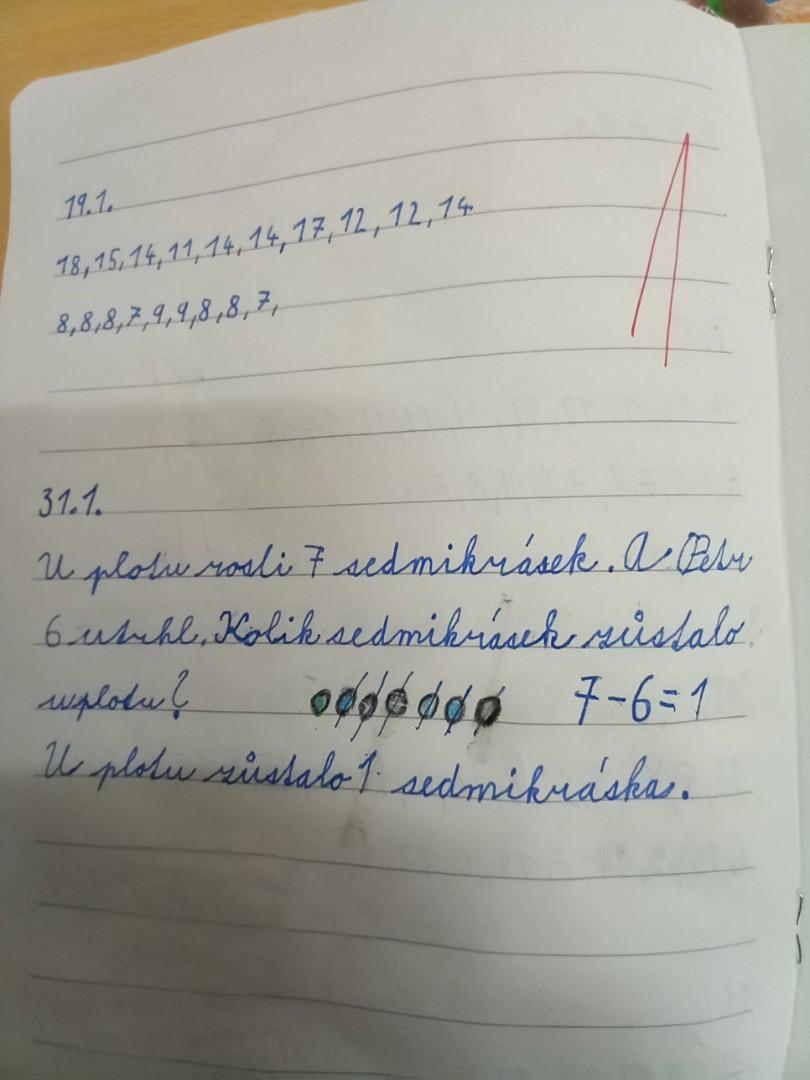 19.1.
18,15,14,11,14,14,17,12,12,14
8,8,8,7,9,9,8,8,7,
1
31.1.
U plotu rostli 7 sedmikrásek. A Petr
6 utrhl. Kolik sedmikrásek zůstalo
uplotu?
7-6=1
U plotu zůstalo 1 sedmikráska.